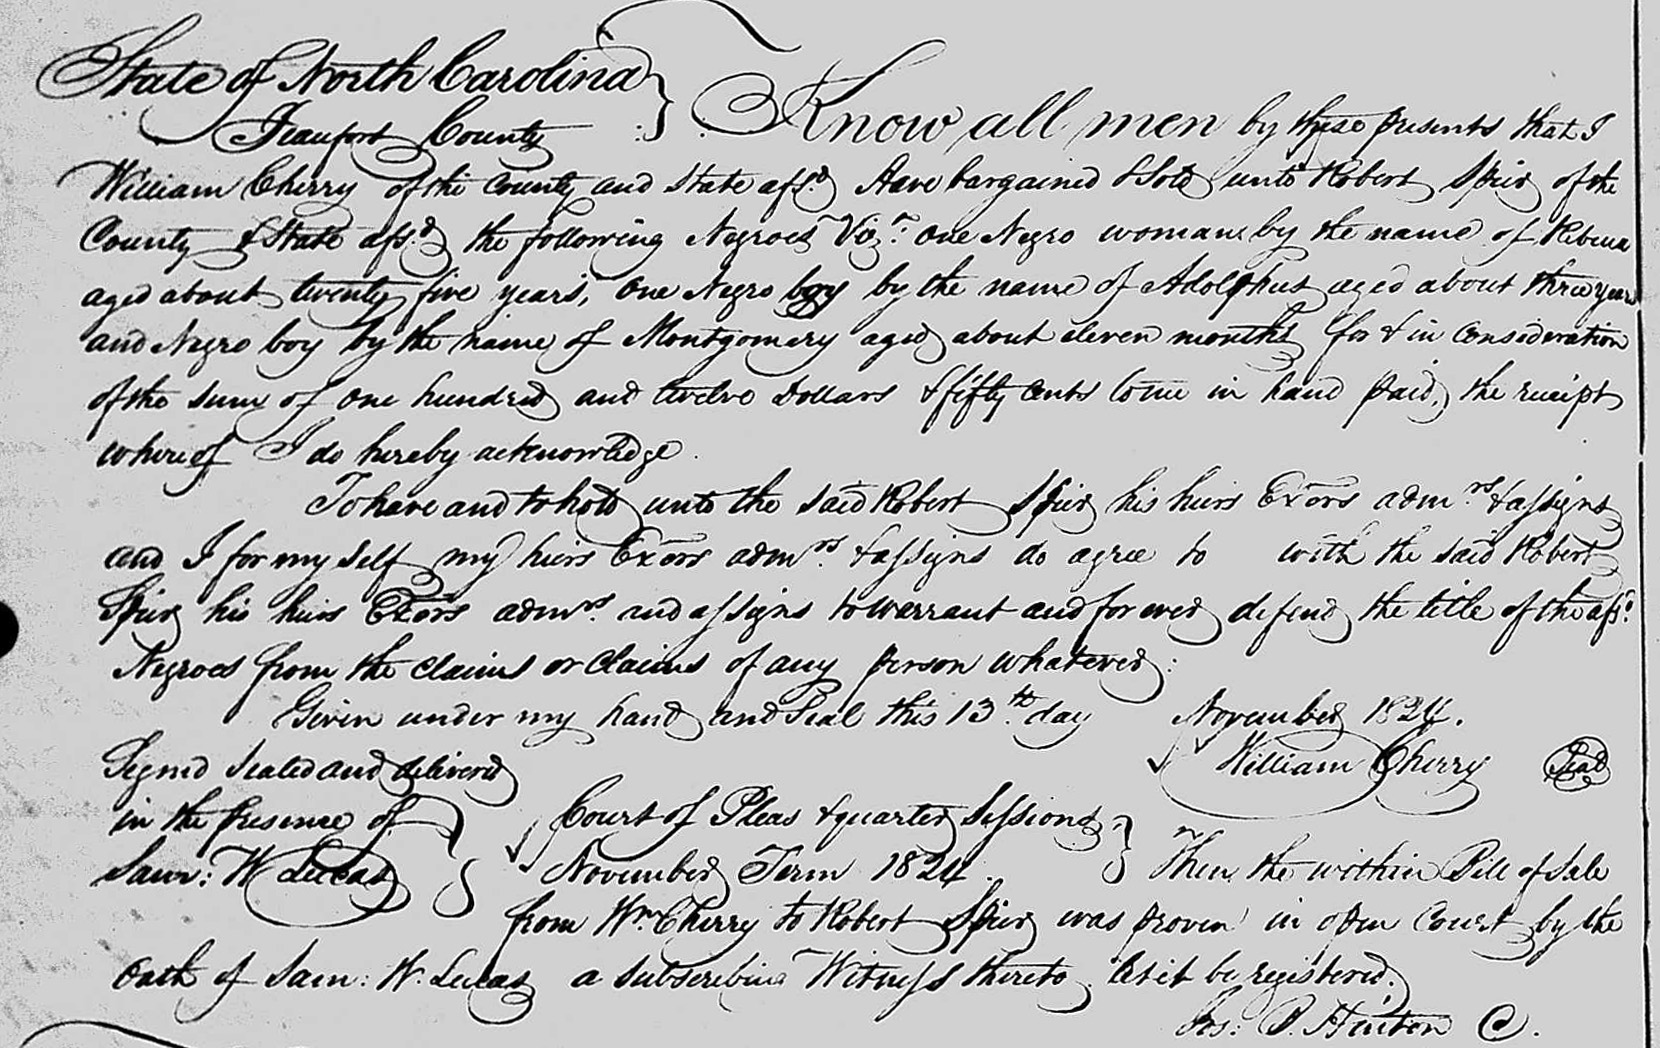 State of North Carolina }
Beaufort County } Know all men by these presents that I
William Cherry of the County and State afsd. Have bargained & Sold unto Robert Spier of the
County & State afsd. the following Negroes Vizt. One Negro woman by the name of
aged about twenty five years, One Negro boy by the name of Adolphus aged about three years
and Negro boy by the name of Montgomery aged about eleven months for & in Consideration
of the sum of One hundred and twelve Dollars & fifty Cents to me in hand paid, the receipt
whereof I do hereby acknowledge.
To have and to hold unto the said Robert Spier his heirs Exors admrs. & assigns
and I for my self my heirs Exors admrs. & assigns do agree to with the said Robert
Spier his heirs Exors admrs. and assigns to warrant and for ever defend the title of the afsd.
Negroes from the claims or claims of any person whatever:
Given under my hand and Seal this 13th day November 1824.
Signed sealed and delivered William Cherry Seal
in the presence of } Court of Pleas & quarter Sessions }
Sam: W Lucas } November Term 1824. } Then the within Bill of Sale
from Wm. Cherry to Robert Spier was proven in open Court by the
Oath of Sam: W. Lucas a subscribing Witness thereto. let it be registered.
Jos: B. Hinton C.